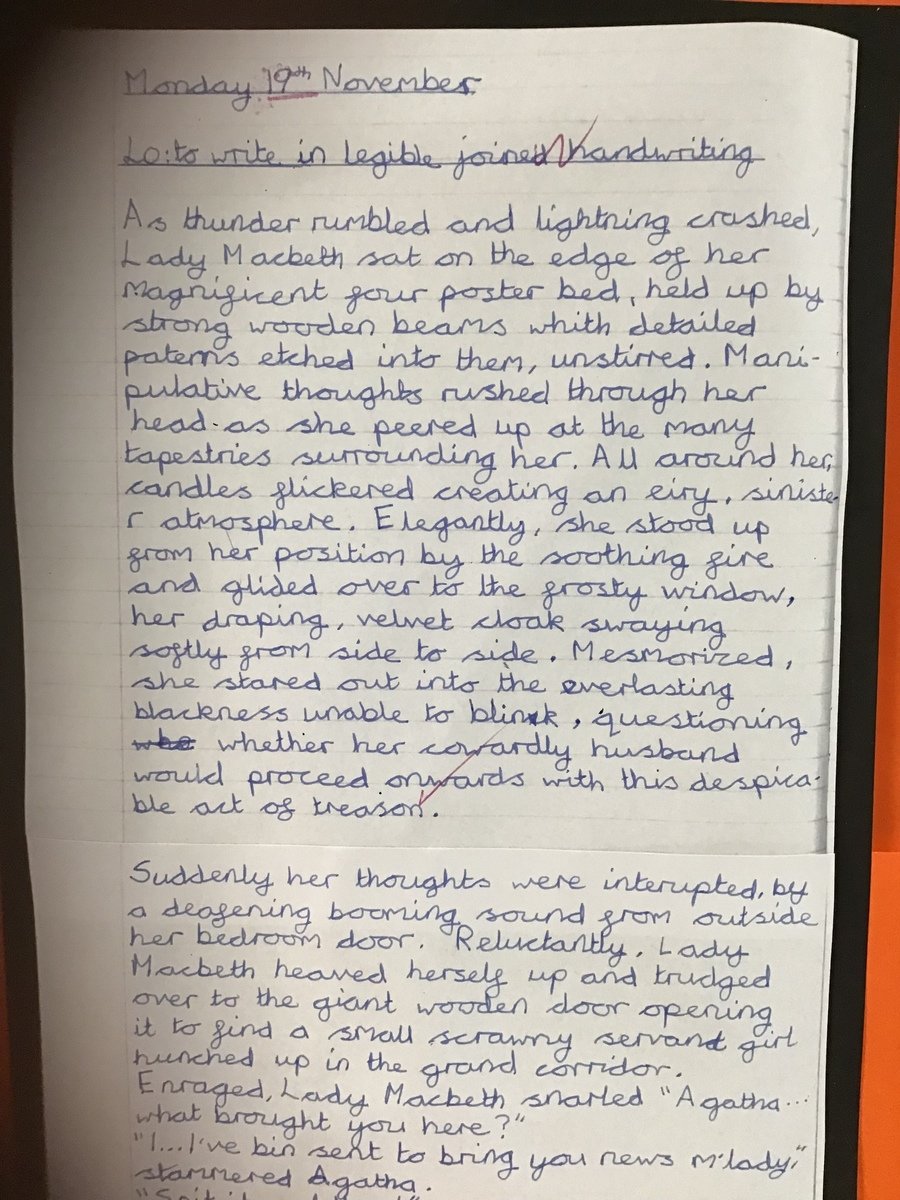 Monday 19th November
LO: to write in legible joined handwriting
As thunder rumbled and lightning crashed,
Lady Macbeth sat on the edge of her
magnificent four poster bed, held up by
strong wooden beams whith detailed
paterns etched into them, unstirred. Mani-
pulative thoughts rushed through her
head as she peered up at the many
tapestries surrounding her. All around her,
candles flickered creating an eiry, siniste
r atmosphere. Elegantly, she stood up
from her position by the soothing fire
and glided over to the frosty window,
her draping, velvet cloak swaying
softly from side to side. Mesmorized,
she stared out into the everlasting
blackness unable to blink, questioning
whether her cowardly husband
would proceed onwards with this despica-
ble act of treason.
Suddenly her thoughts were interupted, by
a deafening booming sound from outside
her bedroom door. Reluctantly, Lady
Macbeth heaved herself up and trudged
over to the giant wooden door opening
it to find a small scrawny servant girl
hunched up in the grand corridor.
Enraged, Lady Macbeth snarled "Agatha...
what brought you here?"
"I...I've bin sent to bring you news m'lady,"
stammered Agatha.